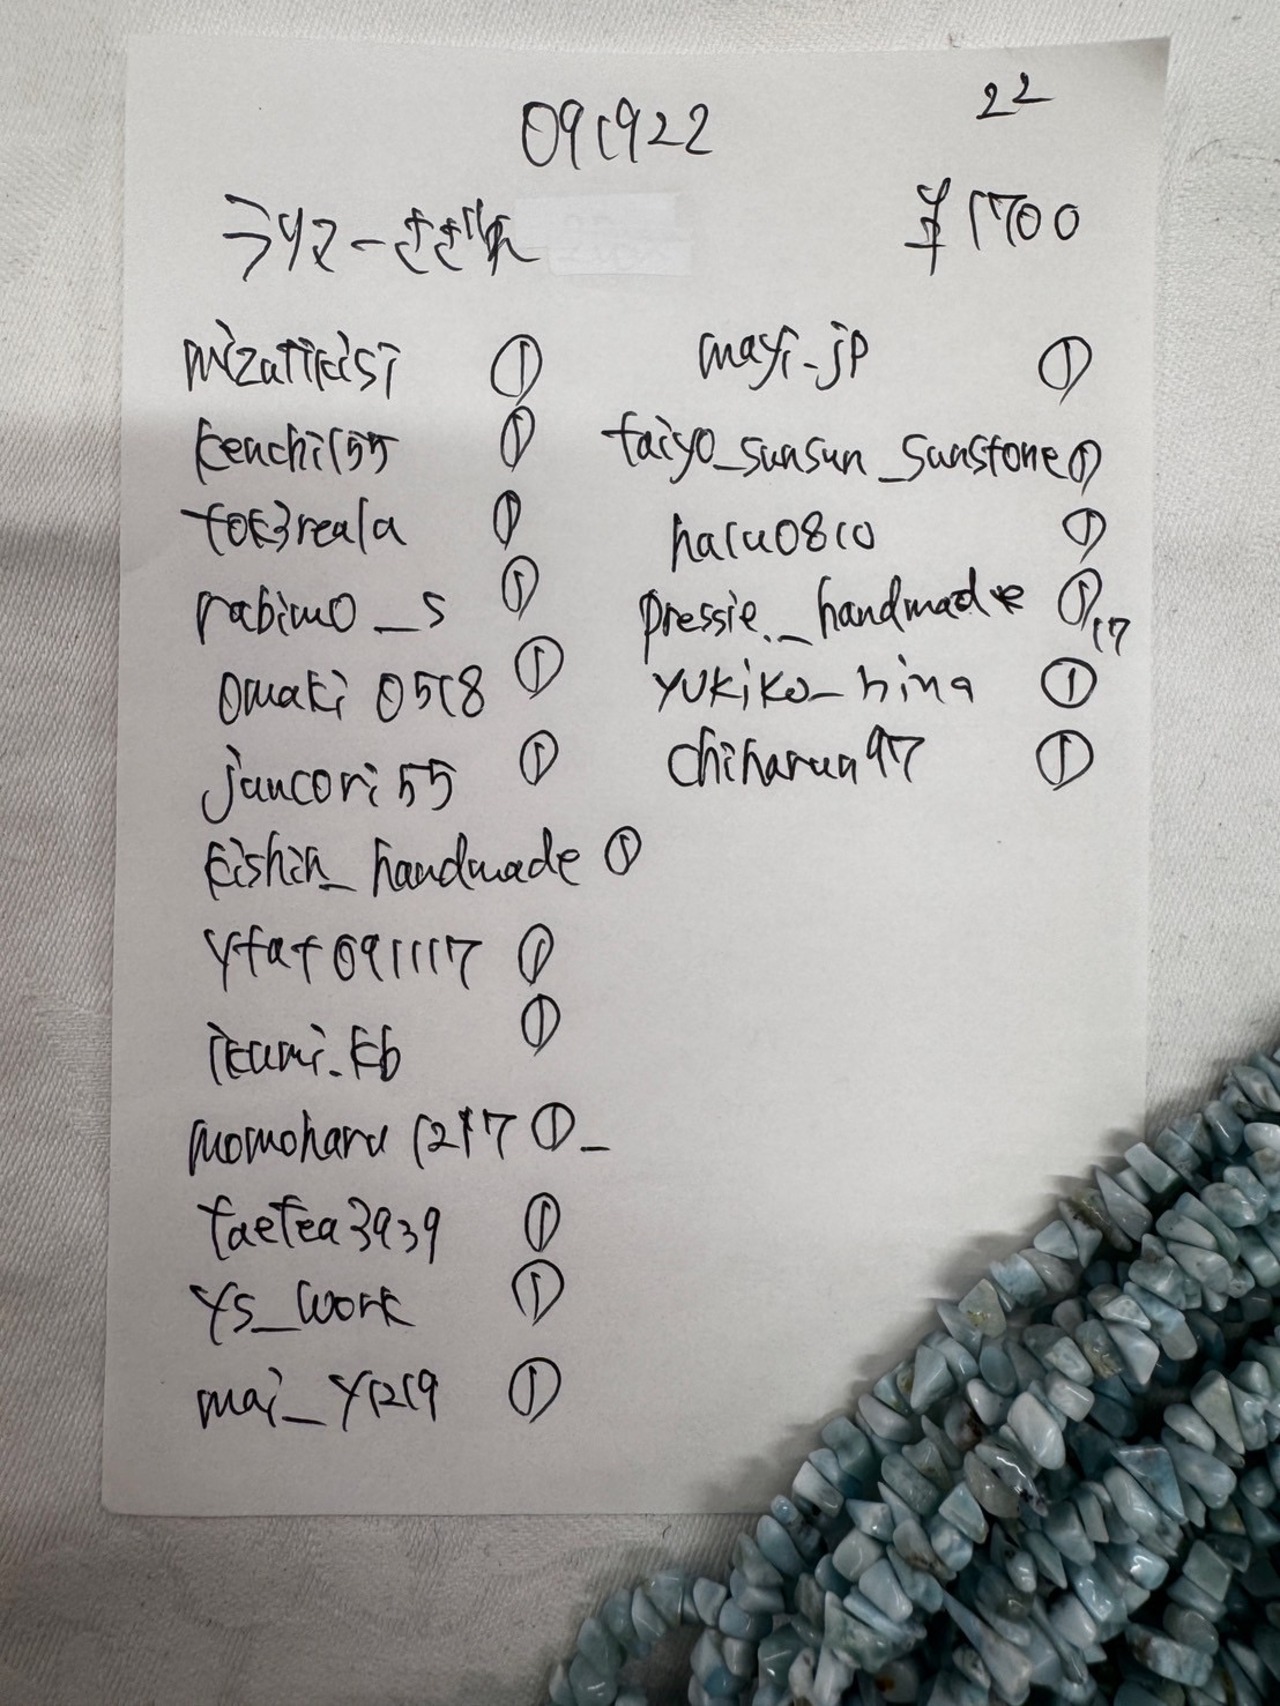 22
091922
ラリマーさざれ
¥1700
mizutikisi ①
kenchi155 ①
tok3reala ①
rabimo_s ①
omaki0518 ①
jancori55 ①
kishin_handmade ①
ytat091117 ①
ikumi.kb ①
momoharu1217 ①_
taetea3939 ①
ys_work ①
mai_y1219 ①
mayi-jp ①
taiyo_sunsun_sunstone ①
haru0810 ①
pressie._handmade ①
17
yukiko_hina ①
chiharun97 ①